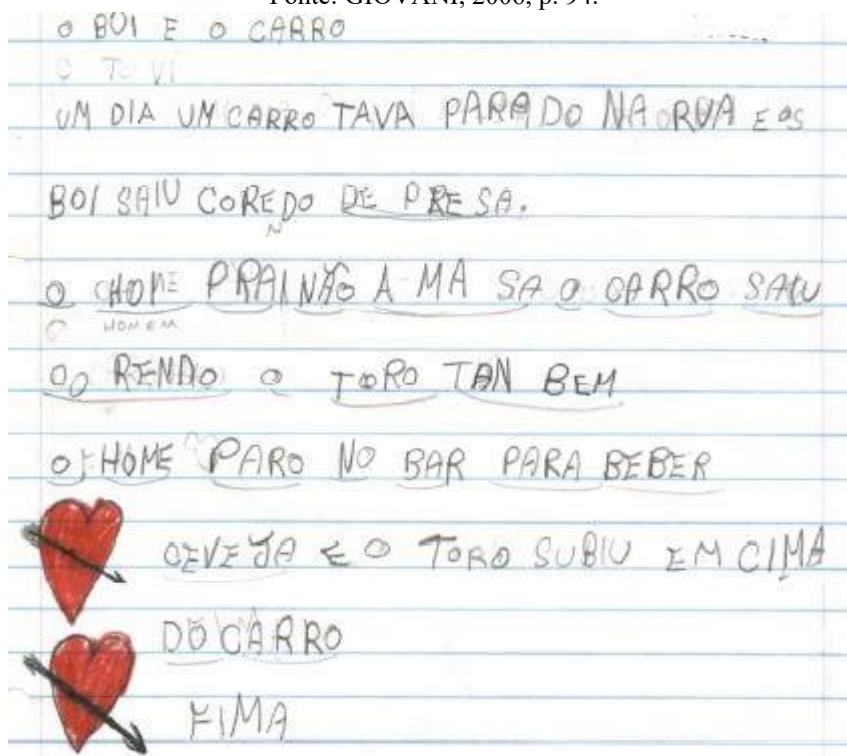 Fonte: GIOVANI, 2006, p. 94.
O BOI E O CARRO
O TO VI
UM DIA UM CARRO TAVA PARADO NA RUA E OS
BOI SAIU COREDO DE PRESA.
N
O HOME PRAI NÃO A MA SA O CARRO SAIU
O HOMEM
CO RENDO O TORO TAN BEM
O HOME PARO NO BAR PARA BEBER
CEVEJA E O TORO SUBIU EM CIMA
DO CARRO
FIMA